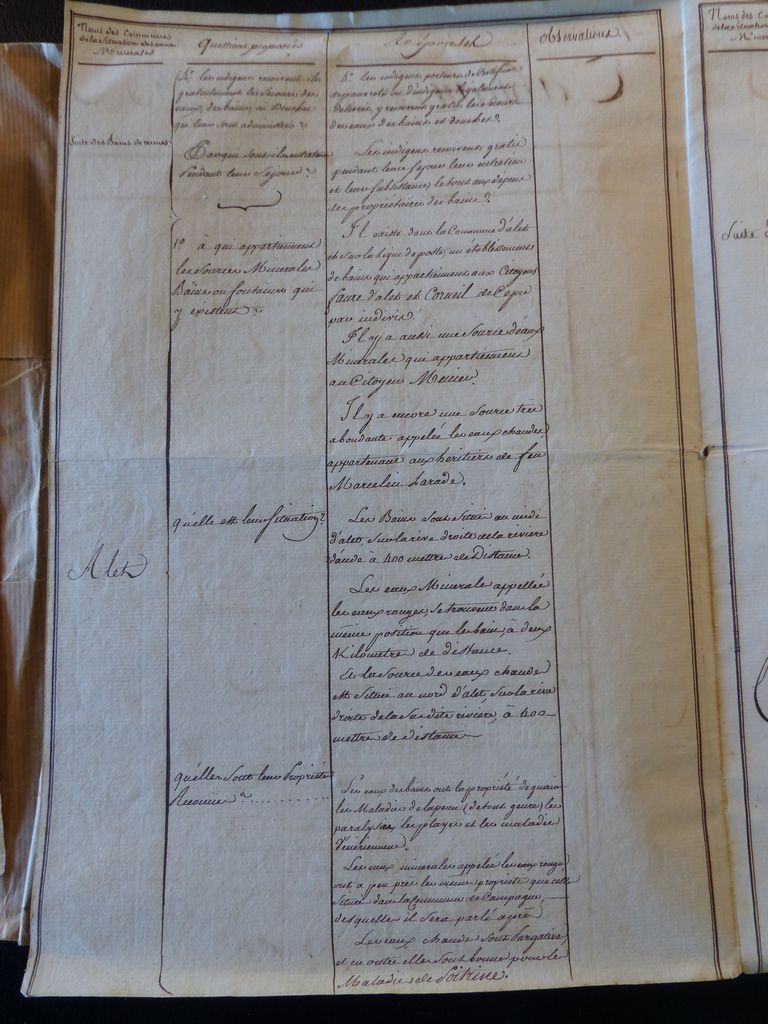 Noms des Communes
de la Situation des eaux
Minerales
Questions proposées
Réponses
Observations
Suite des Bains de rennes
4.° les indigens reçoivent ils
gratuitement les secours des
eaux, des bains, ou Douches
qui leur sont administrés ?
Par qui sont ils entretenus
Pendant leur Séjour ?
4.° les indigens porteurs de Certificats
Délivrés, y reçoivent gratis les secours
des eaux des bains et douches.
Les indigens reçoivent gratis
pendant leur Sejour leur entretien
et leur subsistance, le tout aux dépens
des propriétaires des bains.
Alet
1.° à qui appartiennent
les Sources Minerales
Bains ou fontaines qui
y existent ?
Il existe dans la Commune d'alet
et sur la ligne de poste, un établissement
de bains qui appartiennent aux Citoyens
faure d'alet et Corneil de Cepie
par indivis.
Il y a aussi une Source d'eaux
Minerales qui appartiennent
au CitoyenMénier.
Il y a encore une Source très
abondante appelée les eaux chaudes,
appartenant aux héritiers de feu
Marcelin Larade.
Quelle est leur Situation ?
Les Bains sont situés au midi
d'alet, sur la rive droite de la riviere
d'aude à 400 mettre de Distance.
Les eaux Minerale appellée
les eaux rouges, se trouvent dans la
même position que les bains, à deux
Kilometre de distance.
Et la Source des eaux chaude
est Située au nord d'alet, sur la rive
droite de la Susdite riviere, à 400
mettre de distance
Quelles Sont leur Propriété
Reconnue ?
Les eaux des bains ont la propriété de guérir
les Maladies de la peau (de tous genre) les
paralysies, les playes et les maladies
Vénériennes.
Les eaux minerales appelée les eaux rouges
ont a peu près les mêmes propriété que celle
Située dans la Commune de Campagne,
desquelle il sera parlé après.
Les eaux chaude sont Purgative,
et en outre elles sont bonne pour les
Maladies de Poitrine.
Noms des Co
de la Situation
Min
Suite d